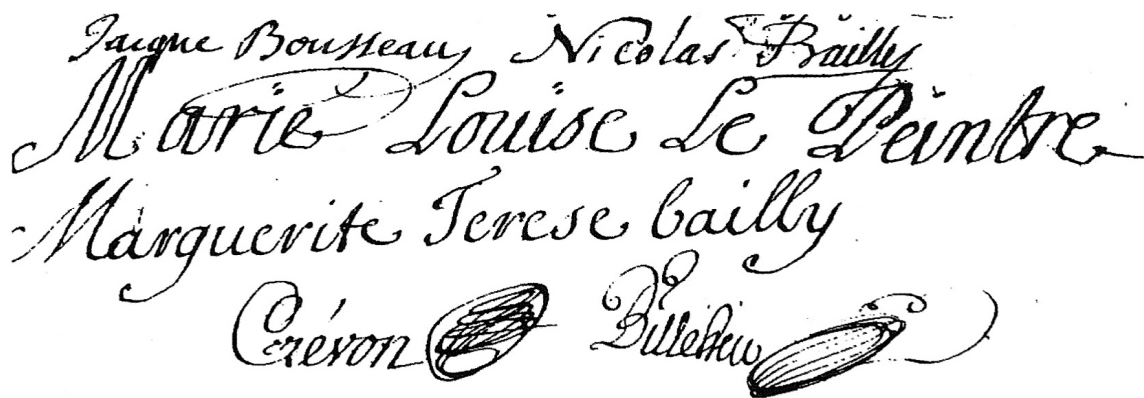 Jacque Bousseau Nicolas Bailly
Marie Louise Le Peintre
Marguerite Terese bailly
Crévon